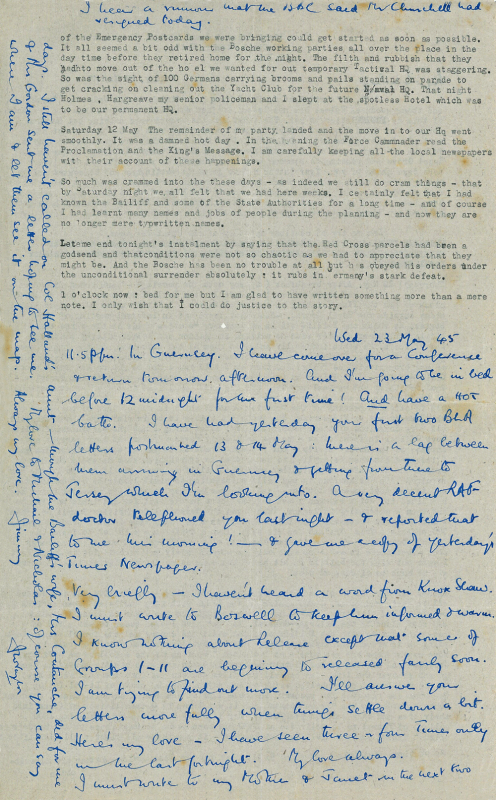 I hear a rumour that the BBC said Mr Churchill had
resigned today.
of the Emergency Postcards we were bringing could get started as soon as possible.
It all seemed a bit odd with the Bosche working parties all over the place in the
day time before they retired home for the night. The filth and rubbish that they
had to move out of the ho el we wanted for out temporary Tactical HQ was staggering.
So was the sight of 100 Germans carrying brooms and pails standing on parade to
get cracking on cleaning out the Yacht Club for the future Naval HQ. That night
Holmes , Hargreave my senior policeman and I slept at the spotless Hotel which was
to be our permanent HQ.
Saturday 12 May The remainder of my party landed and the move in to our Hq went
smoothly. It was a damned hot day . In the evening the Force Commnader read the
Proclamation and the King's Message. I am carefully keeping all the local newspapers
with their account of these happenings.
So much was crammed into the these days - as indeed we still do cram things - that
by Saturday night we all felt that we had been here weeks. I certainly felt that I had
known the Bailiff and some of the State Authorities for a long time - and of course
I had learnt many names and jobs of people during the planning - and now they are
no longer mere typwritten names.
Letame end tonight's instalment by saying that the Red Cross parcels had been a
godsend and thatconditions were not so chaotic as we had to appreciate that they
might be. And the Bosche has been no trouble at all but has obeyed his orders under
the unconditional surrender absolutely : it rubs in ermany's stark defeat.
1 o'clock now : bed for me but I am glad to have written something more than a mere
note. I only wish that I could do justice to the story.
Wed 23 May 45
11.5 pm. In Guernsey. I have come over for a Conference
& return tomorrow afternoon. And I'm going to be in bed
before 12 midnight for the first time! And have a HOT
bath. I have had yesterday your first two BLA
letters postmarked 13 & 14 May : there is a lag between
them arriving in Guernsey & getting from there to
Jersey which I'm looking into. A very decent RAF
doctor telephoned you last night - & reported that
to me this morning! - & gave me a copy of yesterday's
Times Newspaper.
Very briefly - I haven't heard a word from Knox Shaw.
I must write to Boswell to keep him informed & warm.
I know nothing about Release except that some of
Groups 1-11 are beginning to released fairly soon.
I am trying to find out more. I'll answer your
letters more fully when things settle down a bit.
Here's my love - I have seen three or four Times only
in the last fortnight. My love always.
I must write to my Mother & Janet in the next two
days. I still haven't called on Col Holland's aunt - though the Bailiff's wife, Mrs Coutanche, did for me
& Mrs Gordon sent me a letter hoping to see me. My love to Michael & Nicholas : of course you can say
where I am & let them see it on the map. Always my love. Jimmy